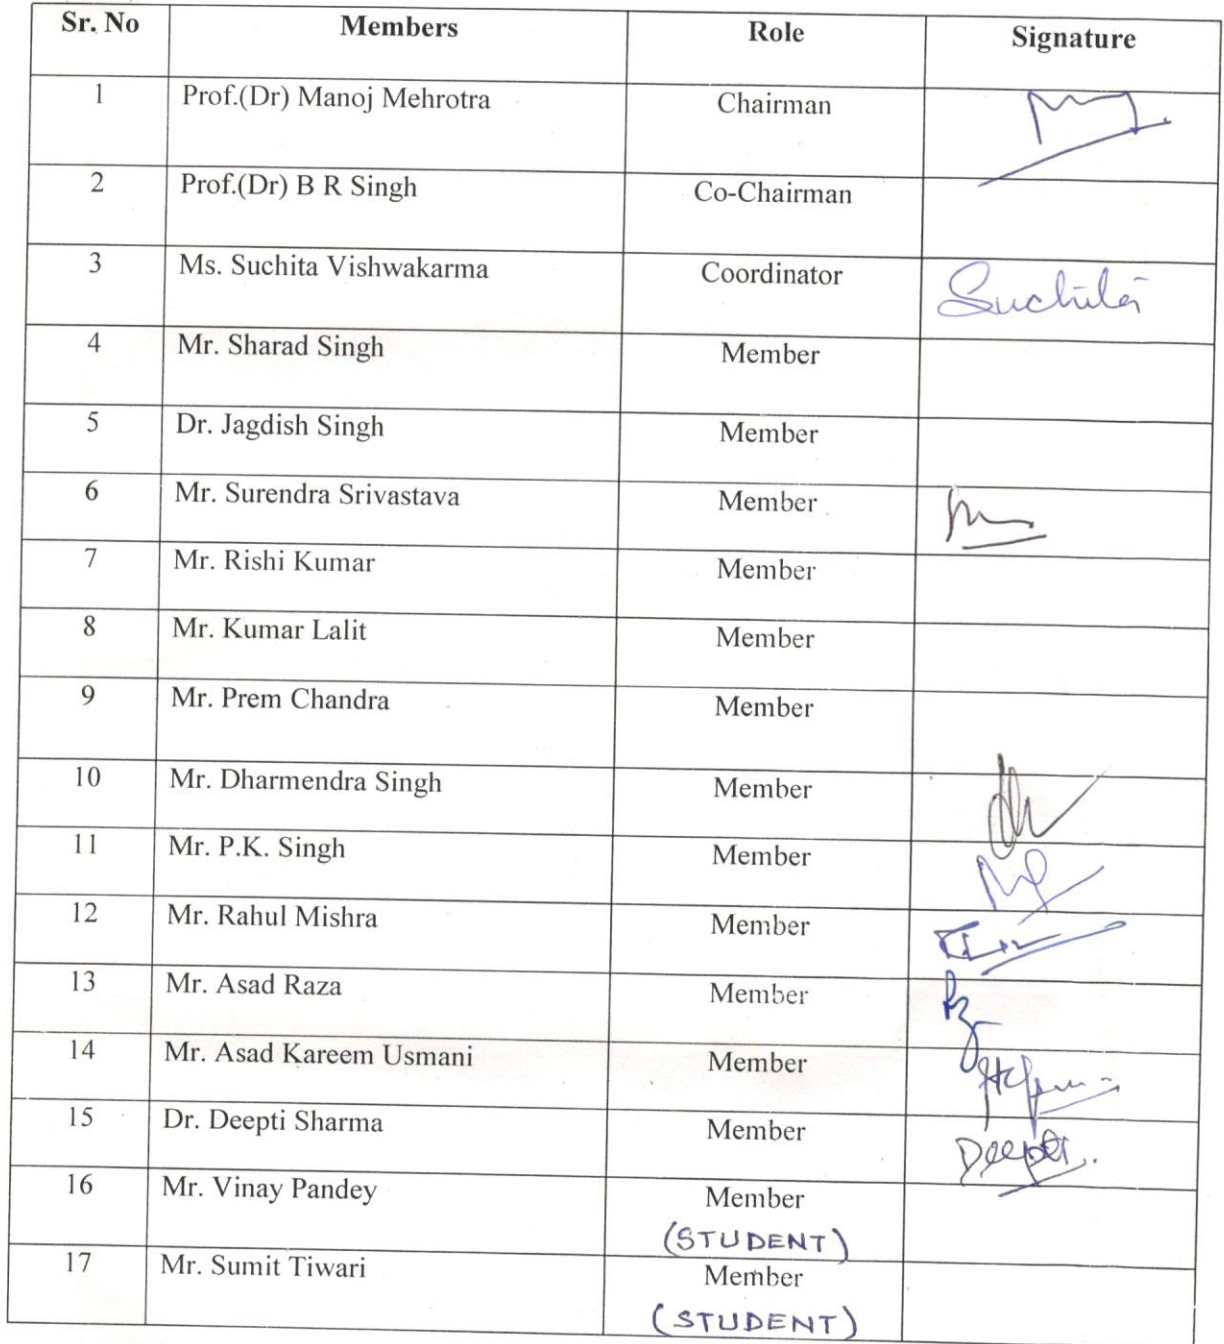 Sr. No Members Role Signature
1 Prof.(Dr) Manoj Mehrotra Chairman
2 Prof.(Dr) B R Singh Co-Chairman
3 Ms. Suchita Vishwakarma Coordinator Suchita
4 Mr. Sharad Singh Member
5 Dr. Jagdish Singh Member
6 Mr. Surendra Srivastava Member
7 Mr. Rishi Kumar Member
8 Mr. Kumar Lalit Member
9 Mr. Prem Chandra Member
10 Mr. Dharmendra Singh Member
11 Mr. P.K. Singh Member
12 Mr. Rahul Mishra Member
13 Mr. Asad Raza Member
14 Mr. Asad Kareem Usmani Member
15 Dr. Deepti Sharma Member Deepti.
16 Mr. Vinay Pandey Member
(STUDENT)
17 Mr. Sumit Tiwari Member
(STUDENT)